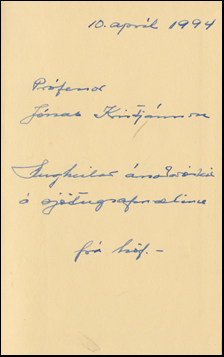 10. apríl 1994
Prófessor
Jónas Kristjánsson
Hugheilar árnaðaróskir
á sjötugsafmælinu
frá höf. –